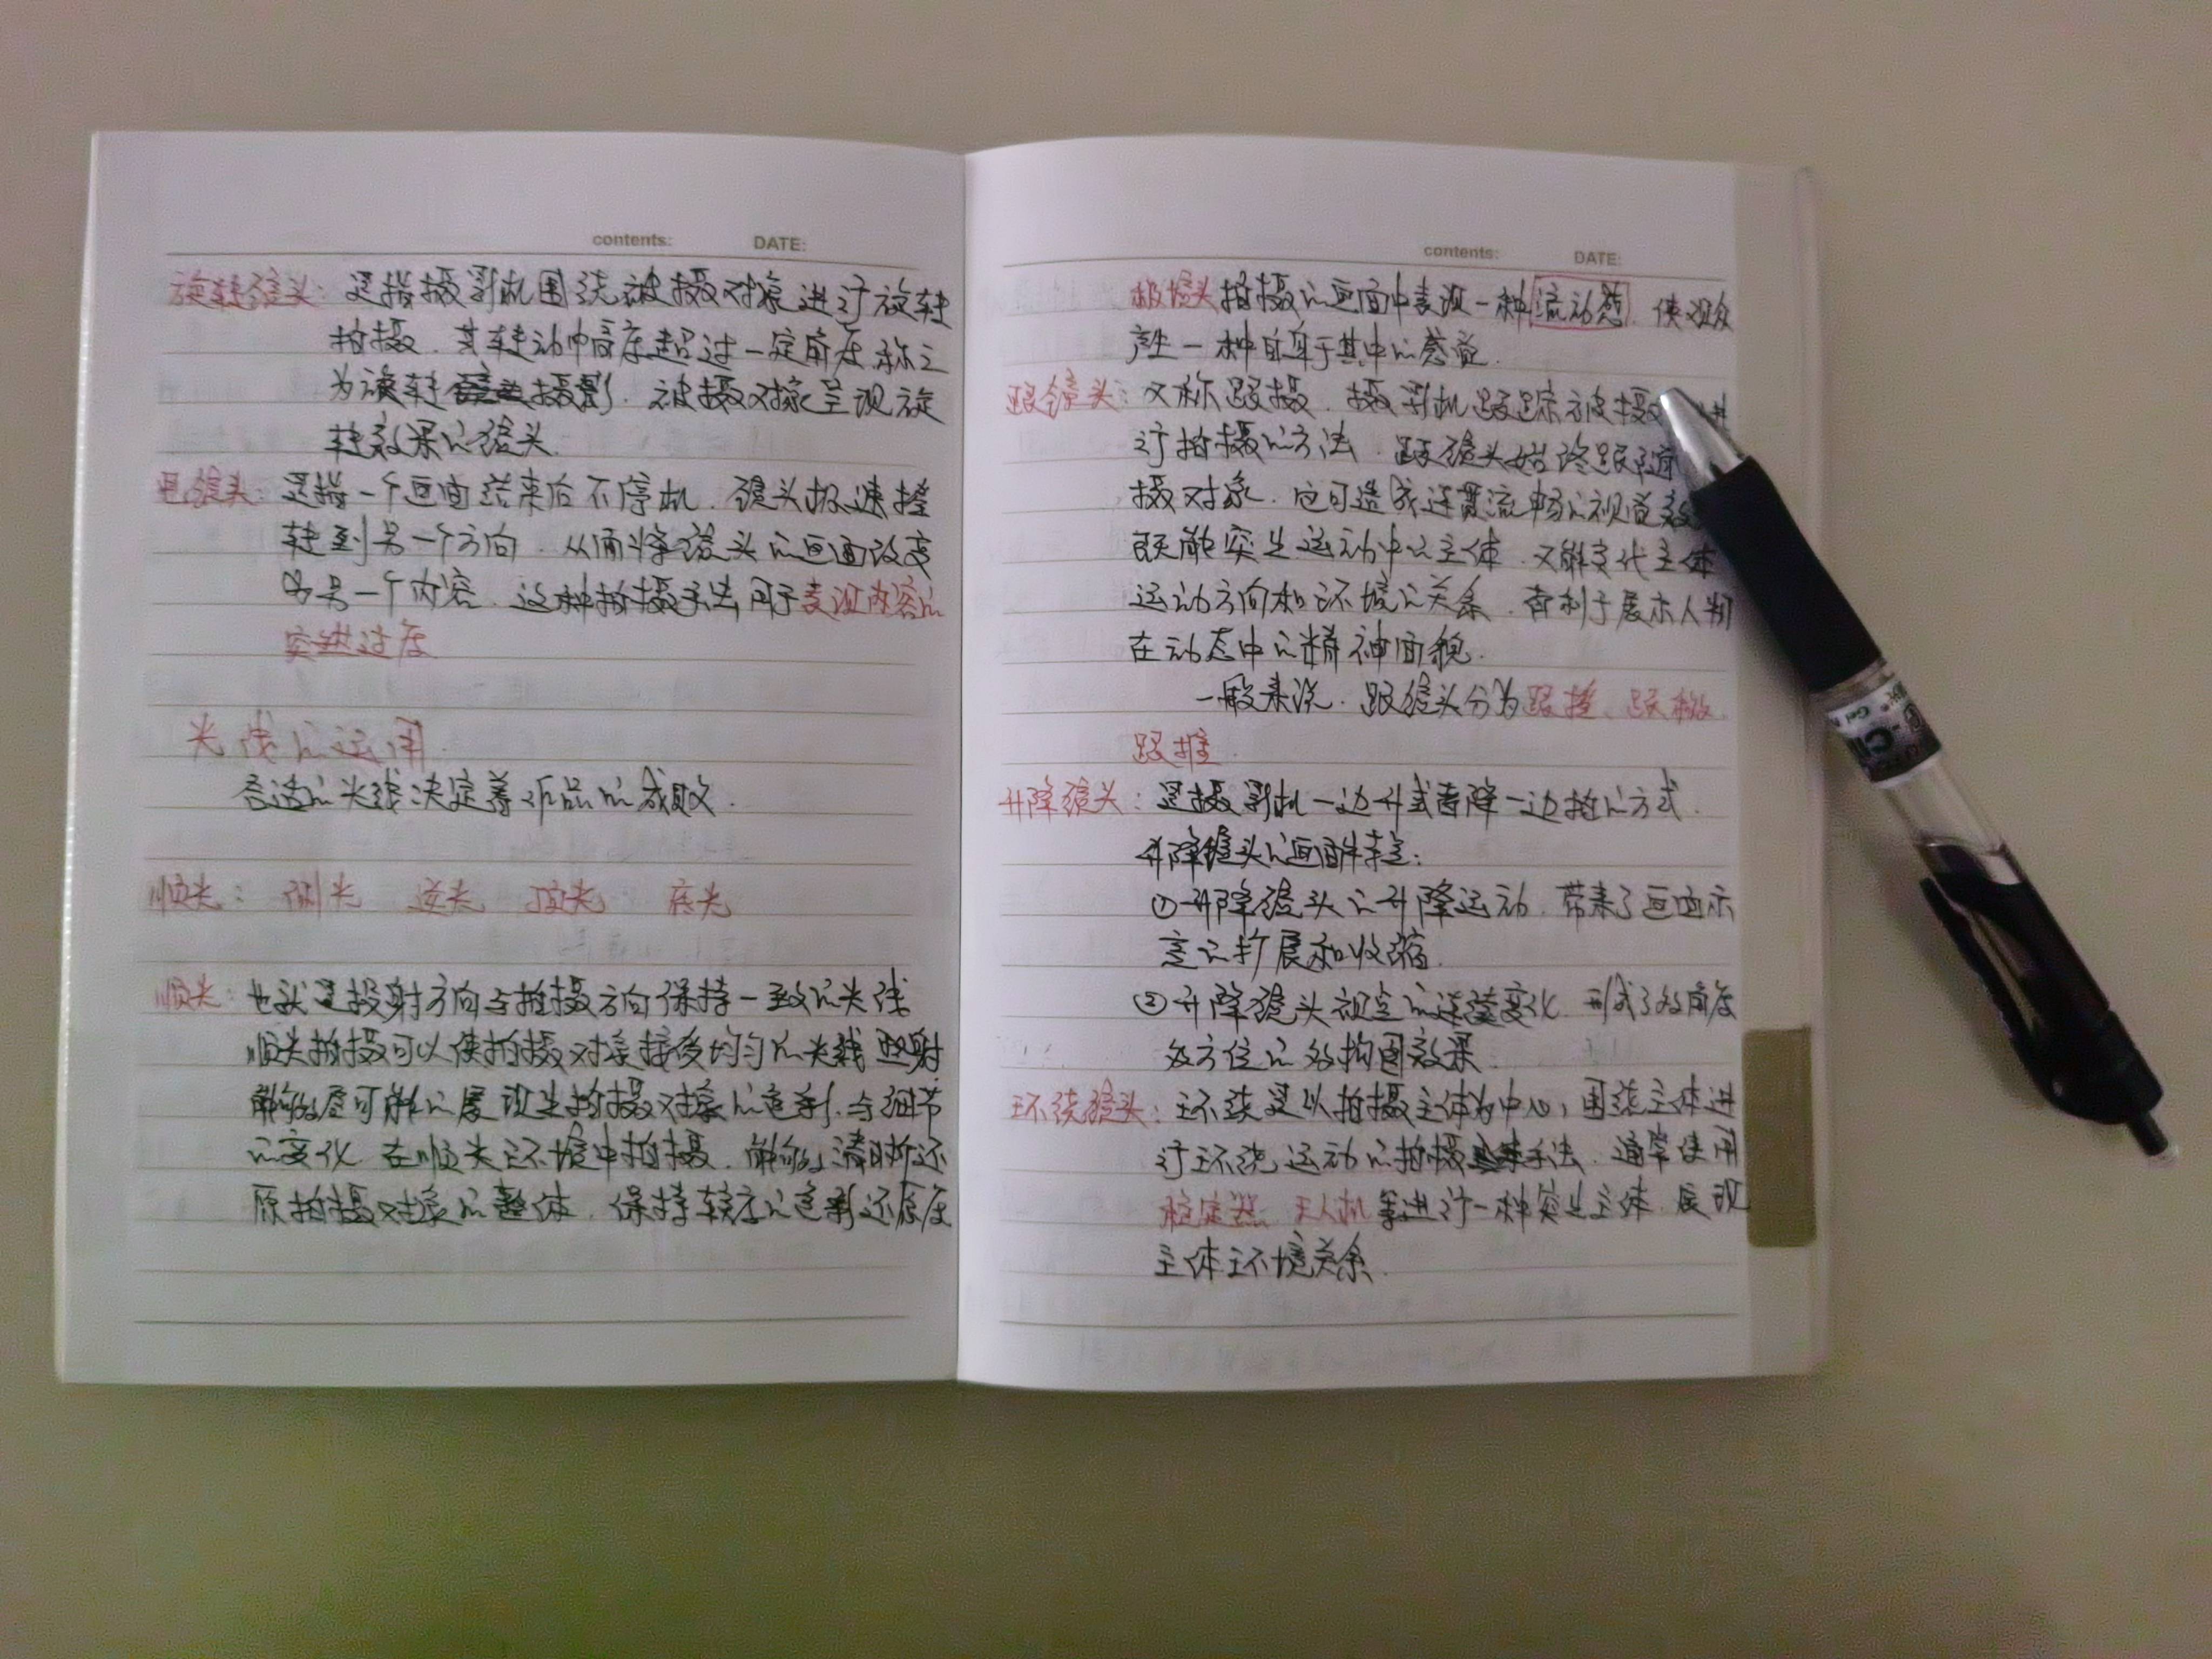 contents: DATE:
旋转镜头：是指摄影机围绕被摄对象进行旋转
拍摄．其转动幅度超过一定角度．称之
为旋转摄影．被摄对象呈现旋
转效果的镜头．
甩镜头：是指一个画面结束后不停机．镜头极速摇
转到另一个方向．从而将镜头的画面改变
为另一个内容．这种拍摄手法用于表现内容的
突然过度
光线的运用
合适的光线决定着作品的成败．
顺光： 侧光 逆光 顶光 底光
顺光：也就是投射方向与拍摄方向保持一致的光线
顺光拍摄可以使拍摄对象接受均匀的光线照射
能够尽可能的展现出拍摄对象的色彩．与细节
的变化．在顺光环境中拍摄．能够清晰还
原拍摄对象的整体．保持较高的色彩还原度
contents: DATE:
移镜头拍摄的画面中表现一种流动感．使观众
产生一种自身于其中的感觉．
跟镜头：又称跟摄．摄影机跟踪被摄 进
行拍摄的方法．跟镜头始终跟随
摄对象．也可造成连贯流畅的视觉效
既能突出运动中的主体．又能交代主体
运动方向和环境的关系．有利于展示人物
在动态中的精神面貌．
一般来说．跟镜头分为跟摇、跟移、
跟推．
升降镜头：是摄影机一边升或者降一边拍的方式．
升降镜头的画面特、：
①升降镜头的升降运动．带来了画面示
意的扩展和收缩．
②升降镜头视点的连续变化．形成了多角度
多方位的多构图效果．
环绕镜头：环绕是以拍摄主体为中心，围绕主体进
行环绕运动的拍摄手法．通常使用
稳定器、无人机等进行一种突出主体．展现
主体环境关系．